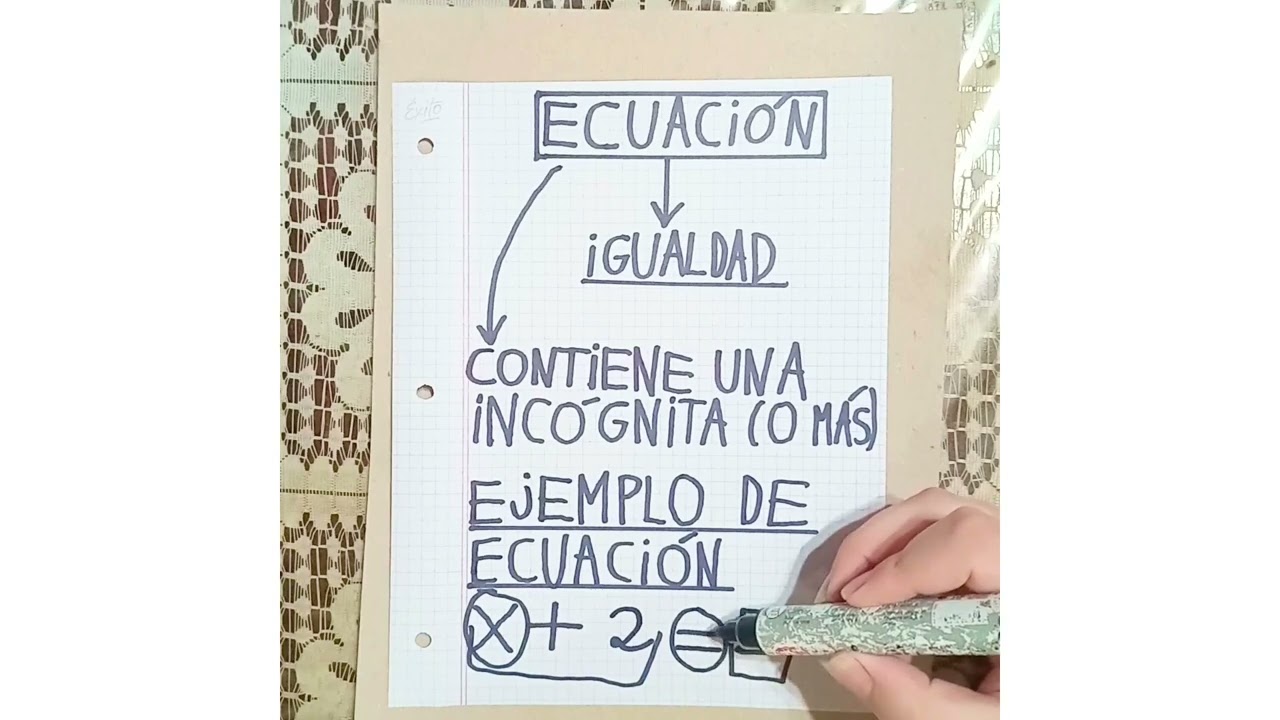 Éxito
ECUACiÓN
iGUALDAD
CONTiENE UNA
iNCÓGNiTA (O MÁS)
EjEMPLO DE
ECUACiÓN
X + 2 =